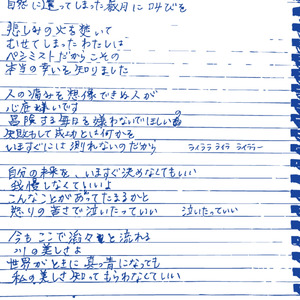 自然に還ってしまった歳月に叫びを
悲しみの火を焚いて
むせてしまったわたしは
ペシミストだからこその
本当の幸いを知りました
人の痛みを想像できぬ人が
心底嫌いです
冒険する毎日を嫌わないでほしいの
失敗もして成功とは何かを
いますぐには測れないのだから ライララ ライラ ライラー
自分の未来を、いますぐ決めなくてもいい
我慢しなくていいよ
こんなことがあってたまるかと
怒りの苦さで泣いたっていい 泣いたっていい
今もここで滔々と流れる
川の美しさよ
世界がときに真っ暗になっても
私の美しさ知ってもらわなくていい